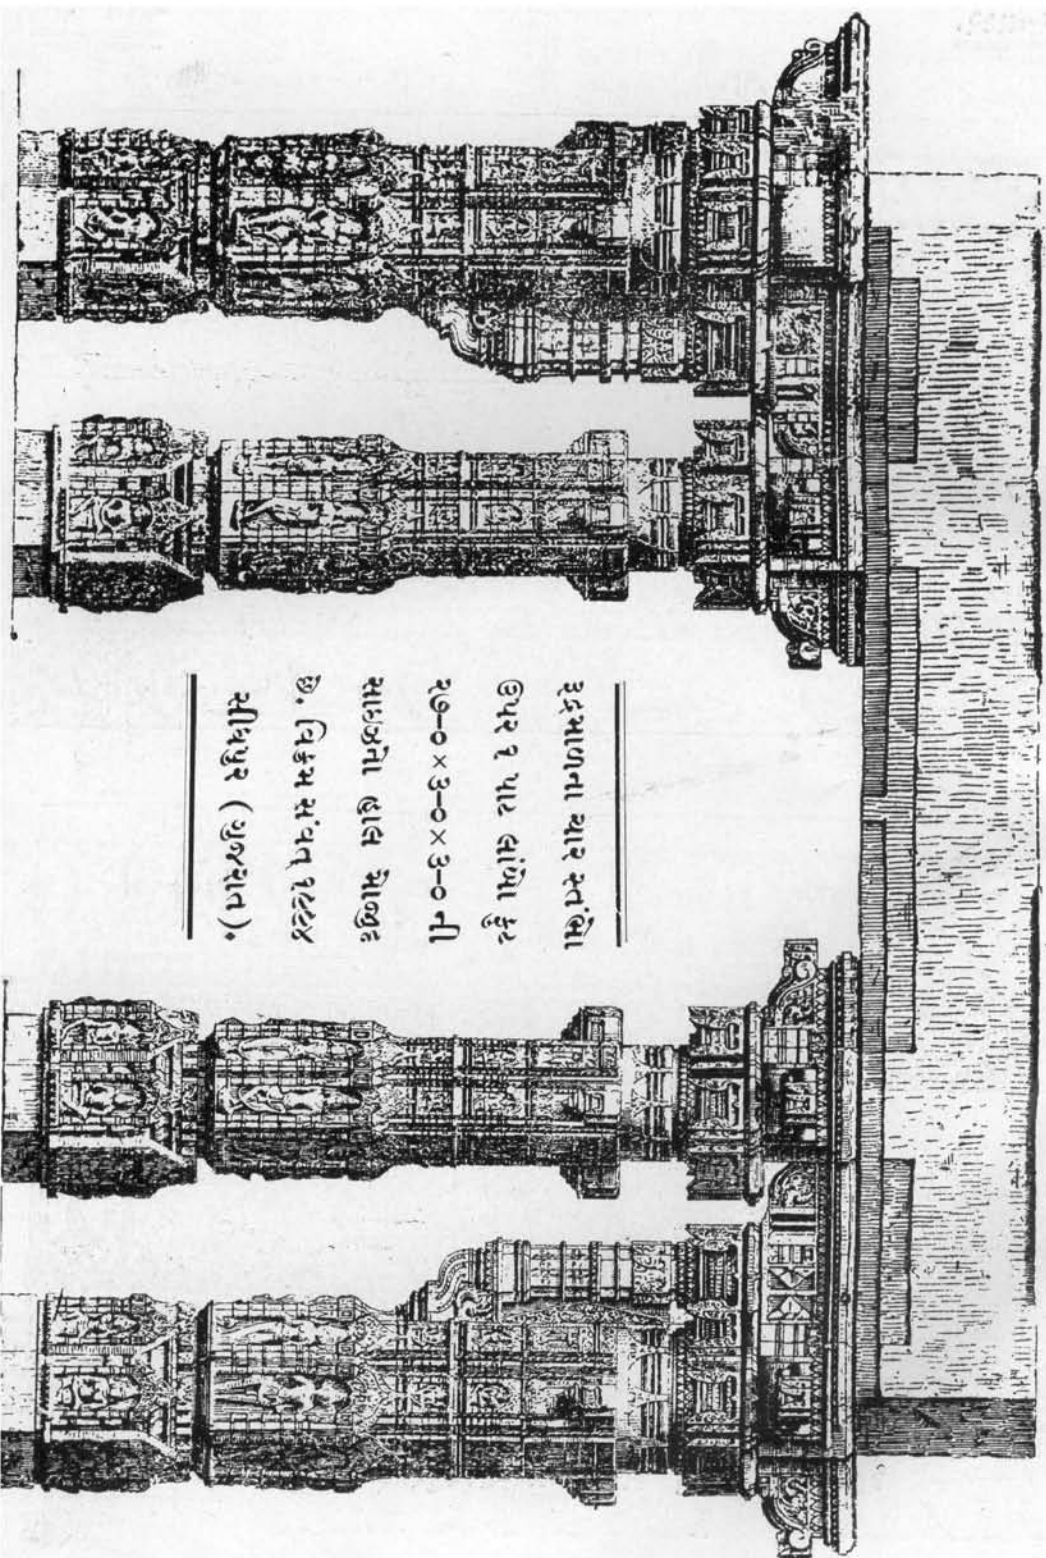 રૂદ્રમાળના ચાર સ્તંભો
ઉપર ૧ પાટ લાંબા ફુટ
૨૭-૦×૩-૦×૩-૦ની
સાઇઝના હાલ મોજુદ
છે. વિક્રમ સંવત્ ૧૯૯૪
સીધ્ધપુર (ગુજરાત).